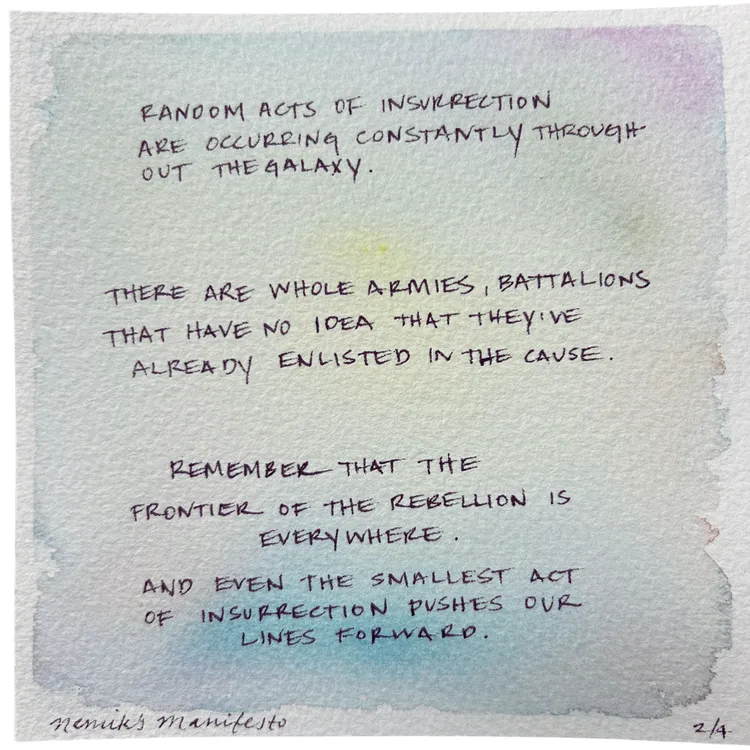 RANDOM ACTS OF INSURRECTION
ARE OCCURRING CONSTANTLY THROUGH-
OUT THE GALAXY.
THERE ARE WHOLE ARMIES, BATTALIONS
THAT HAVE NO IDEA THAT THEY'VE
ALREADY ENLISTED IN THE CAUSE.
REMEMBER THAT THE
FRONTIER OF THE REBELLION IS
EVERYWHERE.
AND EVEN THE SMALLEST ACT
OF INSURRECTION PUSHES OUR
LINES FORWARD.
Nemik's Manifesto
2/4